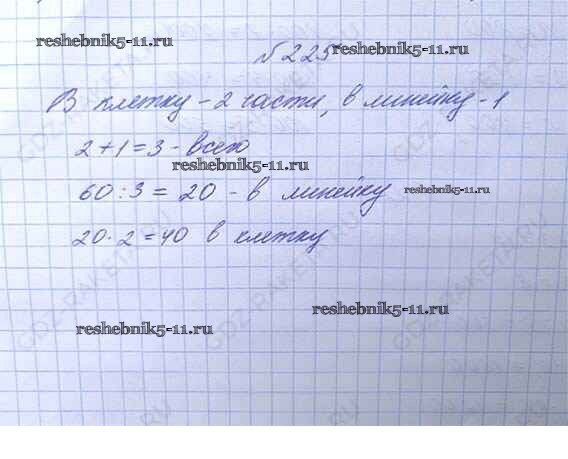 reshebnik5-11.ru
№225
reshebnik5-11.ru
В клетку - 2 части, в линейку - 1
2+1=3 - всего
reshebnik5-11.ru
60:3=20 - в линейку
reshebnik5-11.ru
20·2=40 в клетку
reshebnik5-11.ru
reshebnik5-11.ru